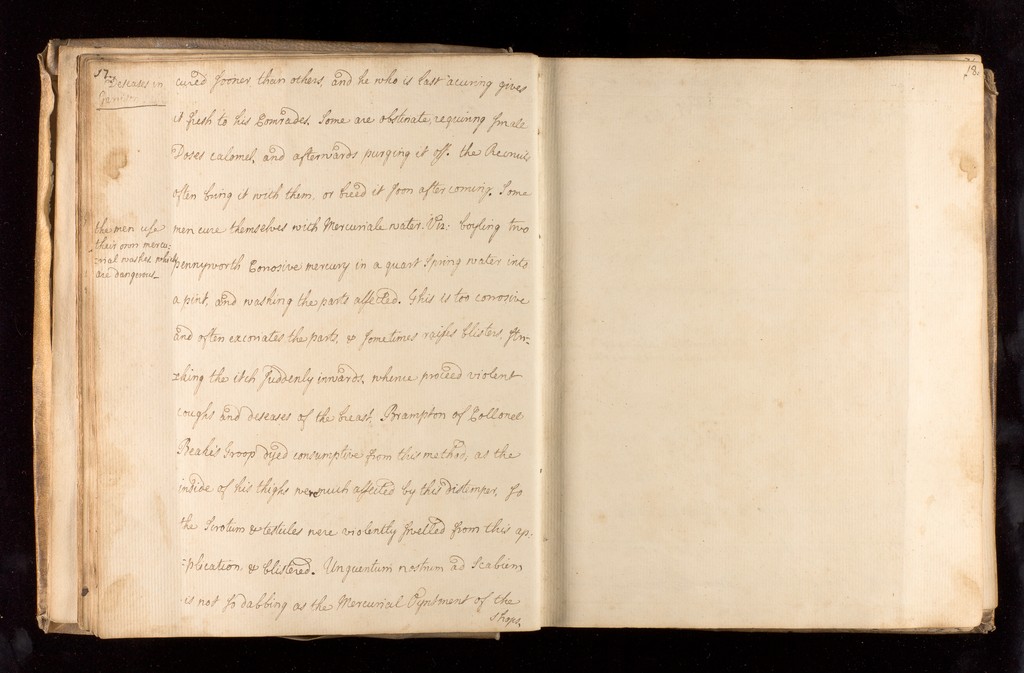 17.
Diseases in
cured sooner than others, and he who is last acuring gives
it fresh to his Comrades. Some are obstinate, requiring small
Doses calomel, and afterwards purging it off. the Recruits
often bring it with them, or breed it soon after coming. Some
the men use
their own mercu:
:rial washes which
are dangerous_
men cure themselves with Mercuriale water. Viz: boyling two
pennyworth Corrosive mercury in a quart Spring water into
a pint, and washing the parts affected. This is too corrosive
and often excoriates the parts, & sometimes raises blisters,
:king the itch suddenly inwards, whence proceed violent
coughs and deseases of the breast. Brampton of Collonel
Troop dyed consumptive from this method, as the
inside of his thighs were much affected by this distemper, so
the Scrotum & testicles were violently swelled from this ap:
:plication, & blistered. Unguentum nostrum ad Scabiem
is not so dabbing as the Mercurial Oyntment of the
shops.
18.